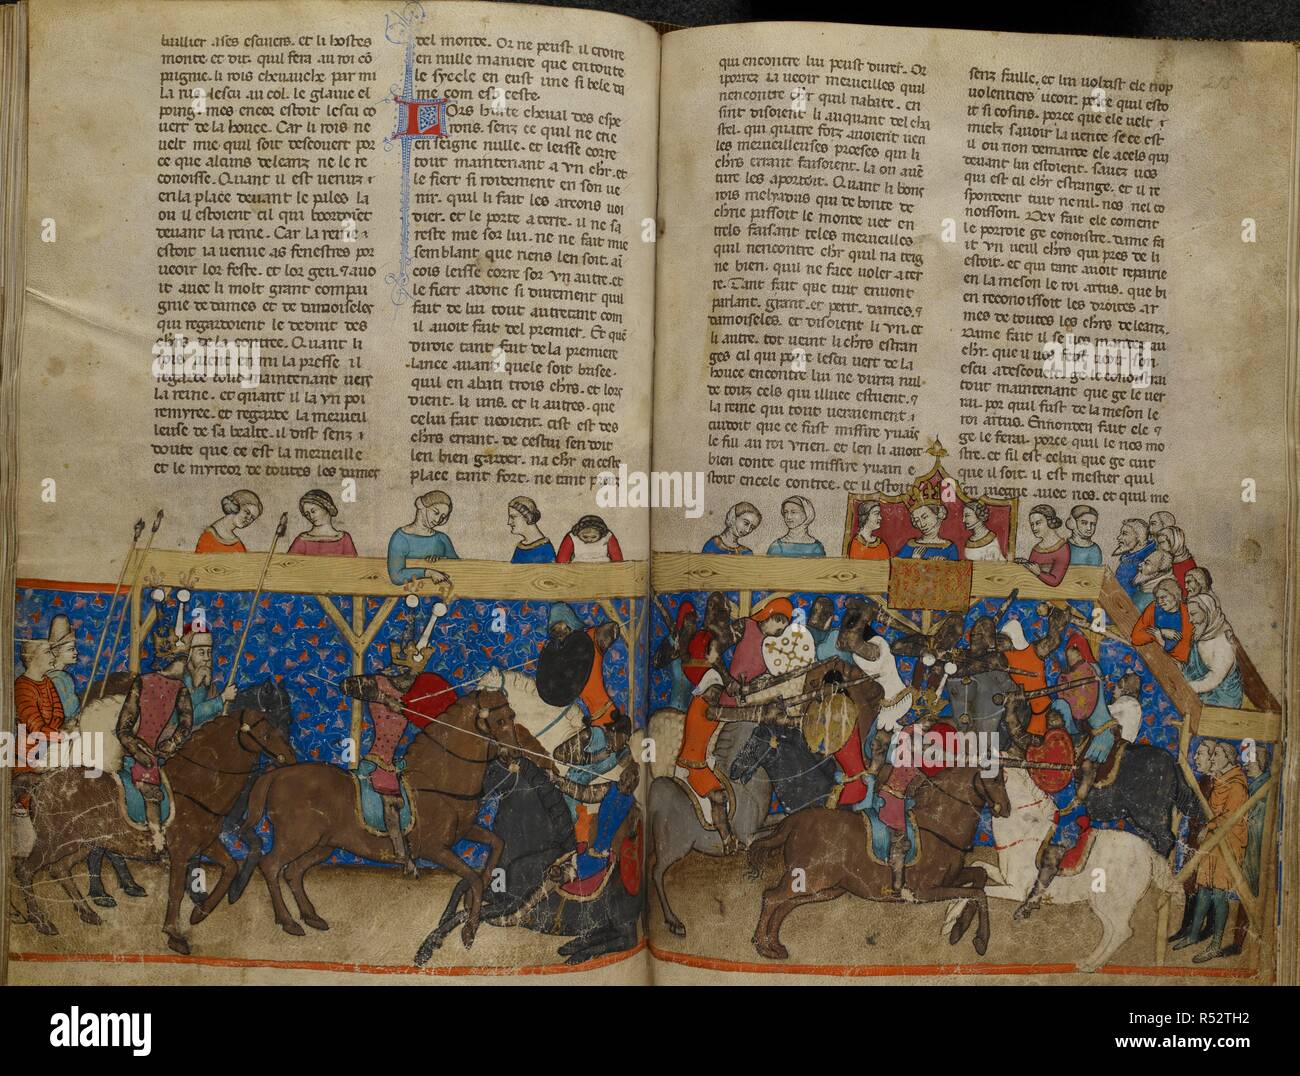 baillier a ses escuiers. et li hostes
monte et dit. quil fera au roi cō
paignie. li rois cheuauche par mi
la rue lescu au col. le glaiue el
poing. mes encor estoit lescu co
uert de la houce. Car li rois ne
uelt mie quil soit descouert por
ce que aleuns deleanz ne le re
conoisse. Quant il est uenuz
en la place deuant le
ou il estoient cil qui
deuant la reine. Car la reine
estoit ia uenue as fenestres por
ueoir lor feste. et lor gieu
it auec li molt grant compai
gnie de dames et de damoiseles
qui regardoient le dedenz des
de la contree. Quant li
rois uient en mi la presse il
regarde tout maintenant uers
la reine. et quant il la un poi
et regarde la merueil
leuse de sa bealte. il dist senz
doute que ce est la merueille
et le myreor de toutes les dames
del monte. Or ne peust il croire
en nulle maniere que en toute
le syecle en eust une si bele da
me com est ceste.
Lors hurte cheual des espe
rons. senz ce quil ne crie
enseigne nulle. et leisse corre
tout maintenant a un chr. et
le fiert si roidement en son ue
nir. quil li fait les arcons uoi
dier. et le porte a terre. il ne sa
reste mie sor lui. ne ne fait mie
semblant que riens len soit. an
cois leisse corre sor un autre. et
le fiert adonc si durement quil
fait de lui tout autretant com
il auoit fait del premier. Et que
diroie tant fait de la premiere
lance auant quele soit brisee.
quil en abati trois chrs. et lors
dient. li uns. et li autres. que
celui fait ueoient. cist est des
chrs errant. de cestui sen doit
len bien garder. na chr en ceste
place tant fort. ne tant preuz
qui encontre lui peust durer. Or
uerrez ia ueoir merueilles quil
nencontre chr quil nabate. en
sint disoient li auquant del cha
stel. qui quatre foiz auoient ueu
les merueilleuses proeses que li
chrs errant faisoient. la ou auē
ture les aportoit. Quant li bons
rois melyadus qui de bonte de
chrie passoit le monde uet en
trels faisant teles merueilles
quil nencontre chr quil na teig
ne bien. quil ne face uoler a ter
re. Tant fait que tuit en uont
parlant. grant. et petit. dames.
damoiseles. et disoient li un. et
li autre. tot ueint li chrs estran
ges cil qui porte lescu uert de la
houce encontre lui ne durra nul
de touz cels qui illuec estoient.
la reine qui tout ueraiement
cuidoit que ce fust missire yuain
le fill au roi yrien. et len li auoit
bien conte que missire yuain e
stoit en cele contree. et il estoit
senz faille. et lui uolsist ele trop
uolentiers ueoir. porce quil esto
it si cosins. porce que ele uelt
mielz sauoir la uerte se ce est
il ou non demande ele a cels qui
deuant lui estoient. sauez uos
qui est cil chr estrange. et il re
spondent tuit nenil. nos nel co
noissom. Dex fait ele coment
le porroie ge conoistre. dame fa
it un ueill chrs qui pres de li
estoit. et qui tant auoit repairie
en la meson le roi artus. que bi
en reconoissoit les droites ar
mes de toutes les chrs deleanz.
Dame fait il se uos
chr. que uos feist ueoir son
escu a descouert ge le conoistrai
tout maintenant que ge le ver
rai. por quil fust de la meson le
roi artus. En non deu fait ele
ge le ferai. porce quil le nos mo
stre. et sil est celui que ge cuit
que il soit. il est mestier quil
en uiegne auec nos. et quil me
215
alamy stock photo
a
alamy
alamy
Image ID: R52TH2
www.alamy.com